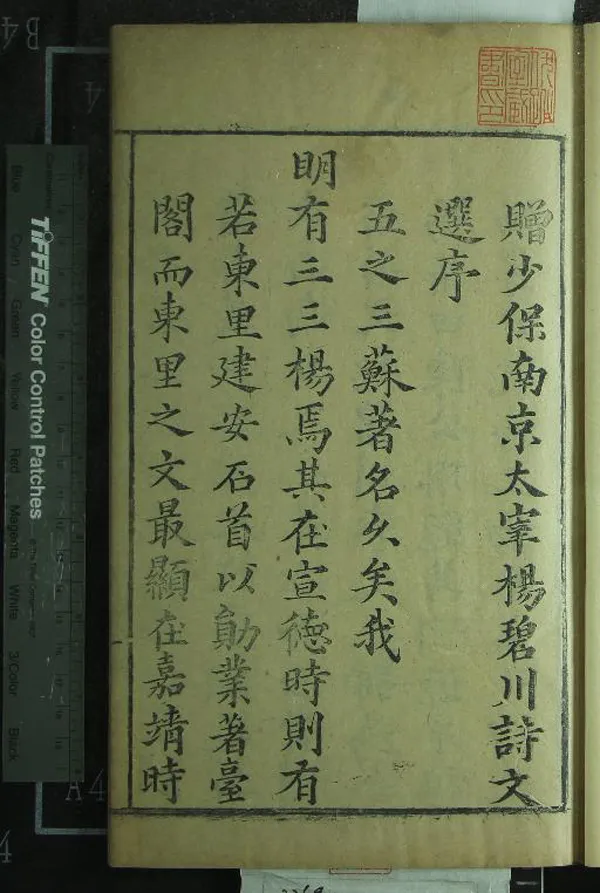 贈少保南京太宰楊碧川詩文
選序
五之三蘇著名久矣我
明有三三楊焉其在宣德時則有
若東里建安石首以勛業著臺
閣而東里之文最顯在嘉靖時
TIFFEN Color Control Patches
Blue
Cyan
Green
Yellow
Red
Magenta
White
3/Color
Black
B4
A4